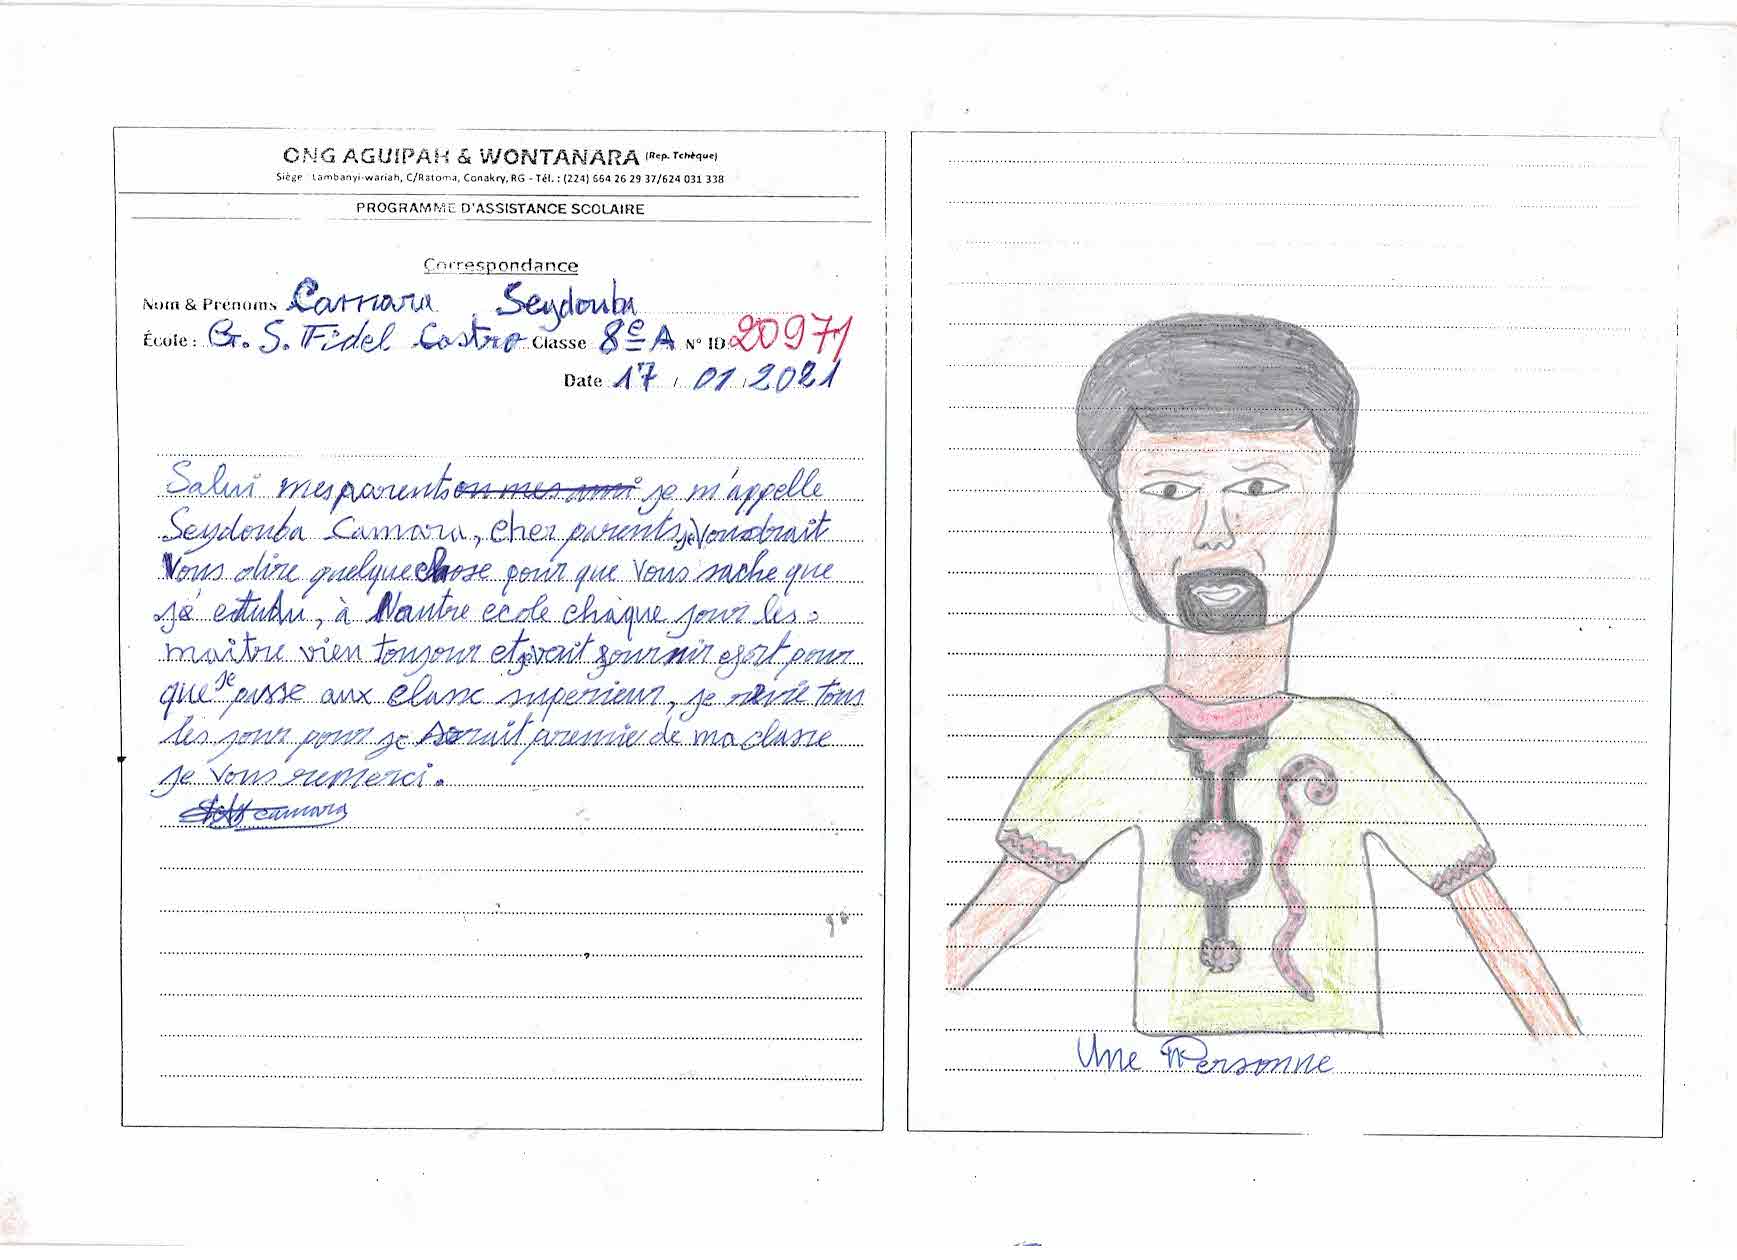 ONG AGUIPAH & WONTANARA (Rep. Tchèque)
Siège : Lambanyi-wariah, C/Ratoma, Conakry, RG - Tél. : (224) 664 26 29 37/624 031 338
PROGRAMME D'ASSISTANCE SCOLAIRE
Correspondance
Nom & Prénoms Camara Seydouba
École : G. S. Fidel Castro Classe 8e A N° ID 20971
Date 17 / 01 / 2021
Salui mes parents je m'appelle
Seydouba Camara, cher parents, je Voudrait
Vous dire quelque chose pour que Vous sache que
à Nautre ecole chaque jour les
maitre vien toujour et je vait fournir efort pour
que je passe aux classe superieur, je tous
les jour pour je serait premie de ma classe
je Vous remerci.
camara
Une Personne